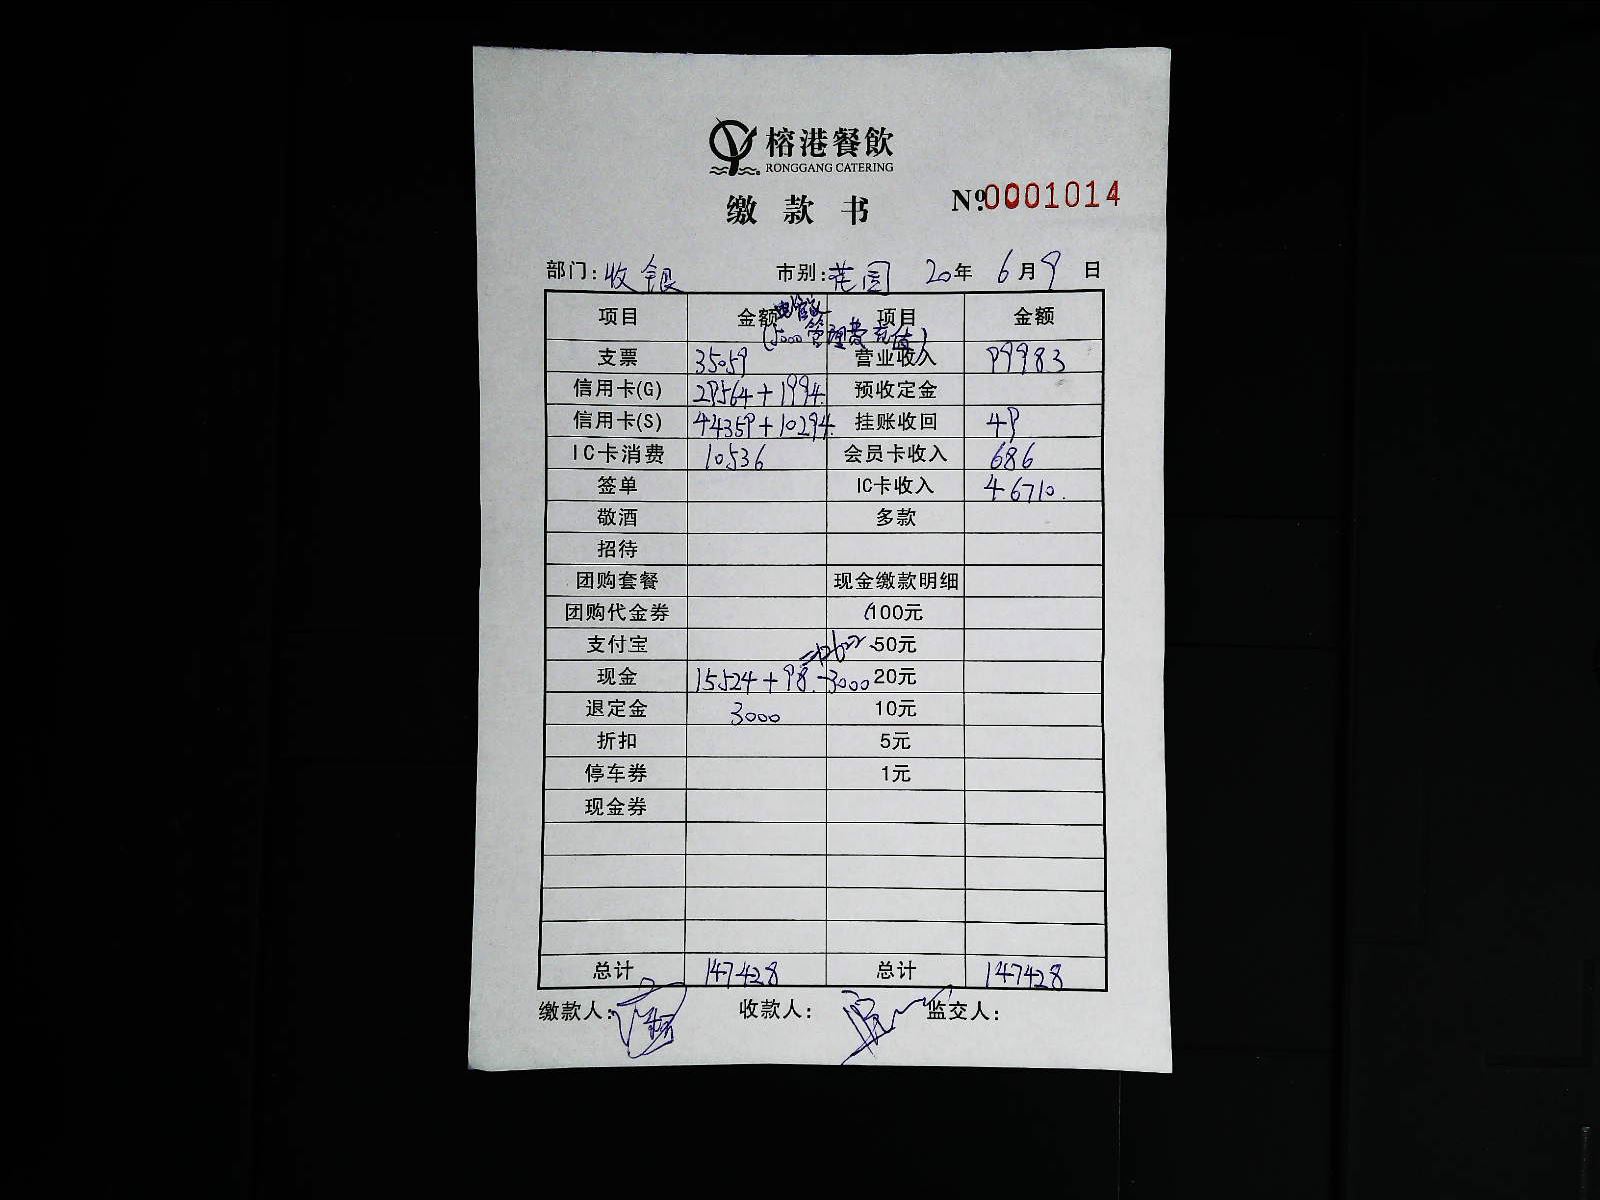 榕港餐飲
RONGGANG CATERING
缴款书
№0001014
部门:收银 市别:花园 20年6月9日
项目 金额 项目 金额
(5000管理费充值)
支票 35059 营业收入 99983
信用卡(G) 29564+1994 预收定金
信用卡(S) 44359+10294 挂账收回 49
IC卡消费 10536 会员卡收入 686
签单 IC卡收入 46710.
敬酒 多款
招待
团购套餐 现金缴款明细
团购代金券 100元
支付宝 =12622 50元
现金 15524+98-3000 20元
退定金 3000 10元
折扣 5元
停车券 1元
现金券
总计 147428 总计 147428
缴款人: 收款人: 监交人: